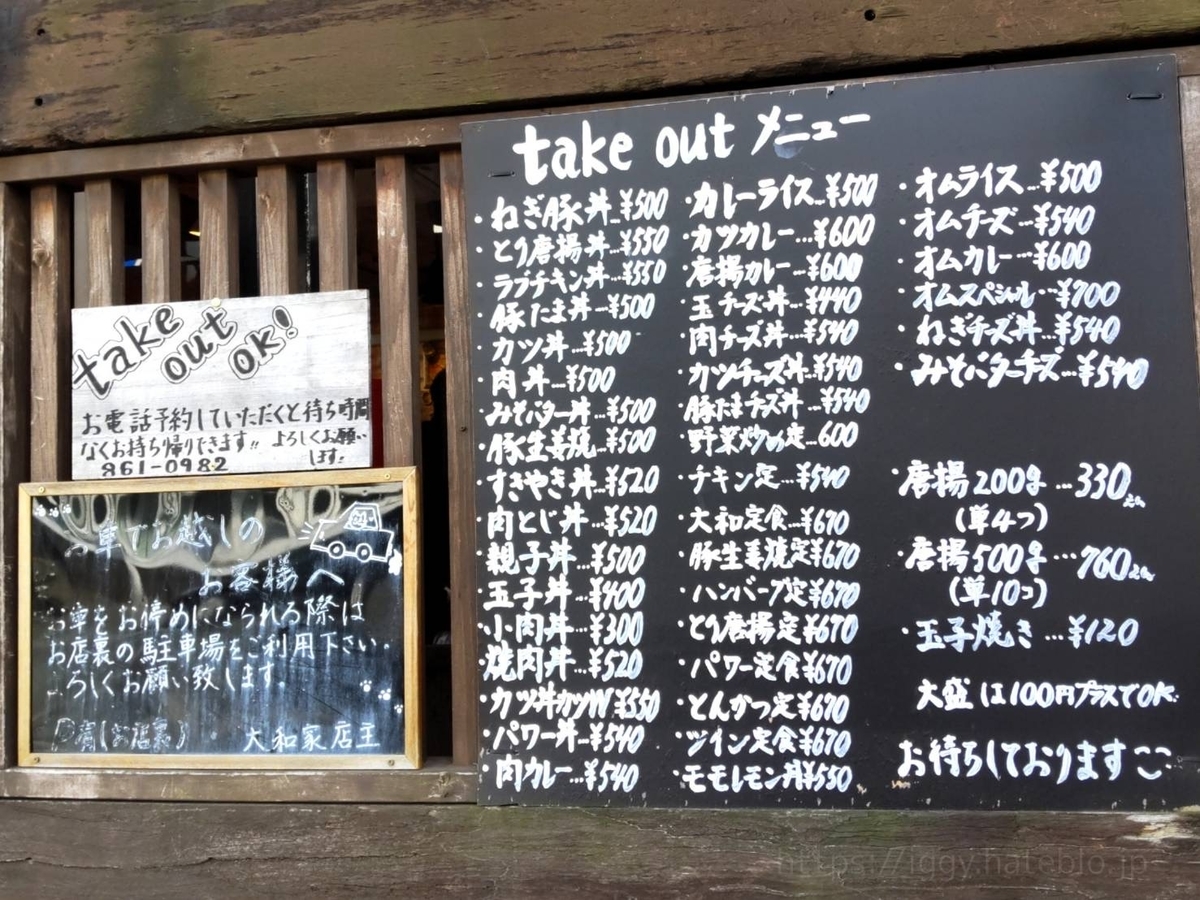 take
out
ok!
お電話予約していただくと待ち時間
なくお持ち帰りできます!! よろしくお願い
します。
861-0982
お車でお越しの
お客様へ
お車をお停めになられる際は
お店裏の駐車場をご利用下さい。
よろしくお願い致します。
(お店裏)
大和家店主
take out メニュー
・ねぎ豚丼…¥500
・とり唐揚丼…¥550
・ラブチキン丼…¥550
・豚たま丼…¥500
・カツ丼…¥500
・肉丼…¥500
・みそバター丼…¥500
・豚生姜焼…¥500
・すきやき丼…¥520
・肉とじ丼…¥520
・親子丼…¥500
・玉子丼…¥400
・小肉丼…¥300
・焼肉丼…¥520
・カツ丼カツW¥550
・パワー丼…¥540
・肉カレー…¥540
・カレーライス…¥500
・カツカレー…¥600
・唐揚カレー…¥600
・玉チーズ丼…¥440
・肉チーズ丼…¥540
・カツチーズ丼…¥540
・豚たまチーズ丼…¥540
・野菜炒め定…600
・チキン定…¥540
・大和定食…¥670
・豚生姜焼定¥670
・ハンバーグ定¥670
・とり唐揚定¥670
・パワー定食¥670
・とんかつ定¥670
・ツイン定食¥670
・モモレモン丼¥550
・オムライス…¥500
・オムチーズ…¥540
・オムカレー…¥600
・オムスペシャル…¥700
・ねぎチーズ丼…¥540
・みそバターチーズ…¥540
・唐揚200g…330えん
(単4つ)
・唐揚500g…760えん
(単10コ)
・玉子焼き…¥120
大盛は100円プラスでOK
お待ちしております
https://iggy.hateblo.jp